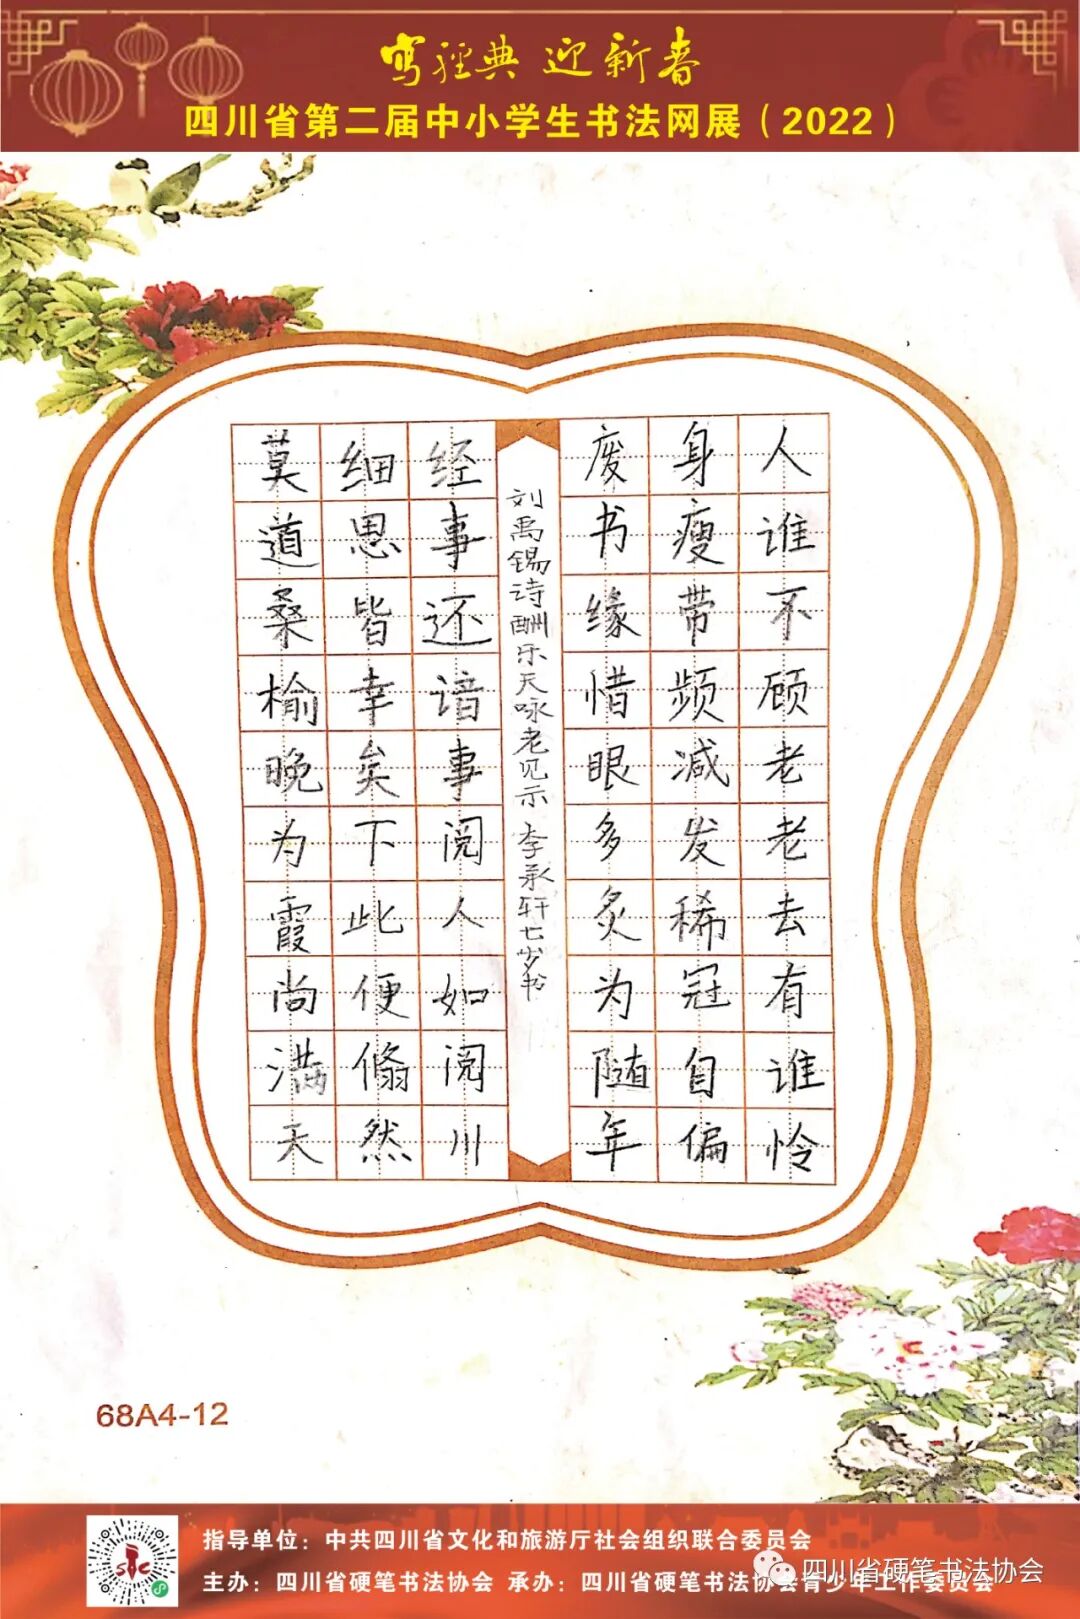 写经典 迎新春
四川省第二届中小学生书法网展（2022）
人谁不顾老老去有谁怜
身瘦带频减发稀冠自偏
废书缘惜眼多炙为随年
刘禹锡诗酬乐天咏老见示 李承轩七岁书
经事还谙事阅人如阅川
细思皆幸矣下此便翛然
莫道桑榆晚为霞尚满天
68A4-12
指导单位：中共四川省文化和旅游厅社会组织联合委员会
主办：四川省硬笔书法协会 承办：四川省硬笔书法协会青少年工作委员会
四川省硬笔书法协会